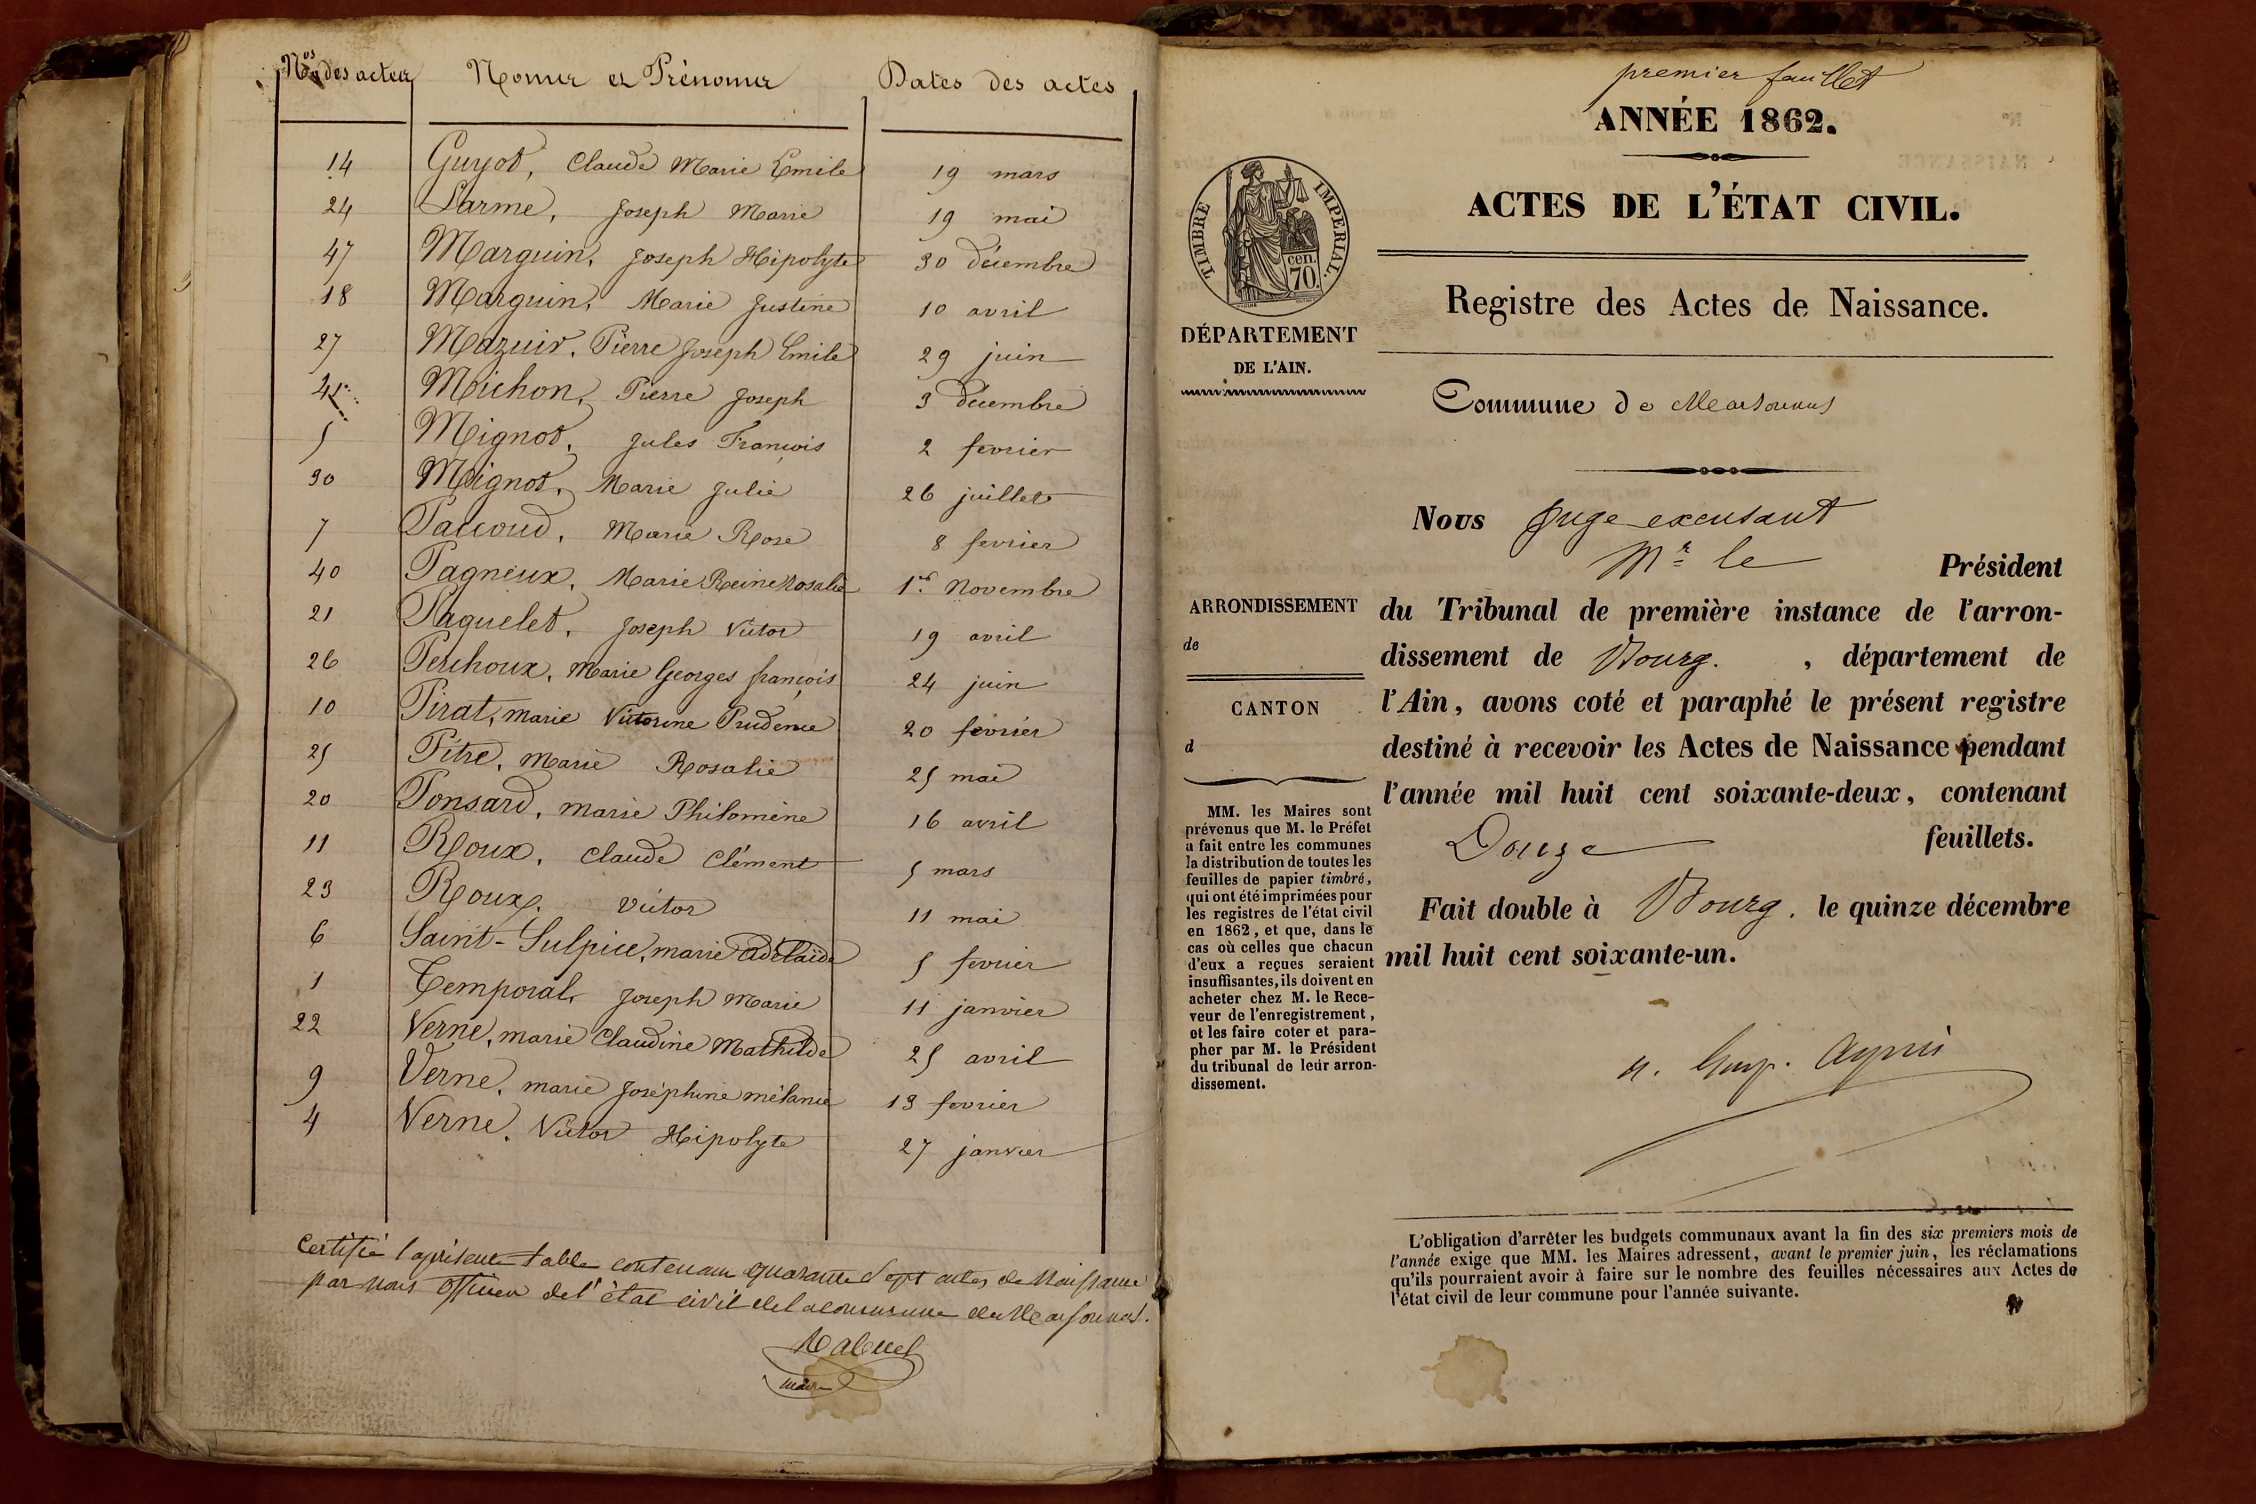 Nos des actes Noms et Prénoms Dates des actes
14 Guyot, Claude Marie Emile 19 mars
24 Larme, Joseph Marie 19 mai
47 Marguin, Joseph Hipolyte 30 décembre
18 Marguin, Marie Justine 10 avril
27 Mazuir, Pierre Joseph Emile 29 juin
Michon, Pierre Joseph 3 décembre
5 Mignot, Jules François 2 fevrier
30 Mignot, Marie Julie 26 juillet
7 Paccoud, Marie Rose 8 fevrier
40 Pagneux, Marie Reine Rosalie 1er Novembre
21 Paquelet, Joseph Victor 19 avril
26 Perchoux, Marie Georges françois 24 juin
10 Pirat, marie Victorine Prudence 20 février
25 Pitre, Marie Rosalie 25 mai
20 Ponsard, marie Philomène 16 avril
11 Roux, Claude Clément 5 mars
23 Roux, Victor 11 mai
6 Saint-Sulpice, marie Adélaïde 5 fevrier
1 Temporal, Joseph Marie 11 janvier
22 Verne, marie Claudine Mathilde 25 avril
9 Verne, marie Joséphine mélanie 13 fevrier
4 Verne, Victor Hipolyte 27 janvier
Certifié la présente table contenant quarante Sept actes de Naissance
par nous officier de l'état civil de la commune de Marsonnas.
maire
premier feuillet
ANNÉE 1862.
ACTES DE L'ÉTAT CIVIL.
Registre des Actes de Naissance.
TIMBRE IMPERIAL.
cen.
70.
DÉPARTEMENT
DE L'AIN.
Commune de Marsonnas
Nous Juge excusant
Mr le Président
du Tribunal de première instance de l'arron-
dissement de Bourg. , département de
l'Ain, avons coté et paraphé le présent registre
destiné à recevoir les Actes de Naissance pendant
l'année mil huit cent soixante-deux, contenant
Douze feuillets.
Fait double à Bourg. le quinze décembre
mil huit cent soixante-un.
ARRONDISSEMENT
de
CANTON
d
MM. les Maires sont
prévenus que M. le Préfet
a fait entre les communes
la distribution de toutes les
feuilles de papier timbré,
qui ont été imprimées pour
les registres de l'état civil
en 1862, et que, dans le
cas où celles que chacun
d'eux a reçues seraient
insuffisantes, ils doivent en
acheter chez M. le Rece-
veur de l'enregistrement,
et les faire coter et para-
pher par M. le Président
du tribunal de leur arron-
dissement.
L'obligation d'arrêter les budgets communaux avant la fin des six premiers mois de
l'année exige que MM. les Maires adressent, avant le premier juin, les réclamations
qu'ils pourraient avoir à faire sur le nombre des feuilles nécessaires aux Actes de
l'état civil de leur commune pour l'année suivante.